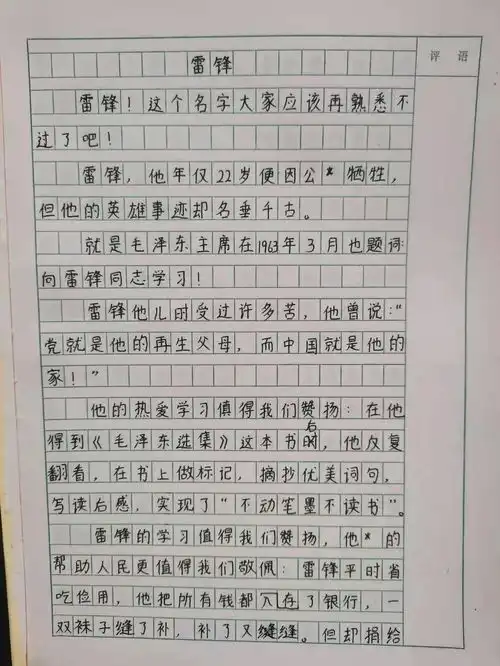 评 语
雷锋
雷锋！这个名字大家应该再熟悉不
过了吧！
雷锋，他年仅22岁便因公*牺牲，
但他的英雄事迹却名垂千古。
就是毛泽东主席在1963年3月也题词
向雷锋同志学习！
雷锋他儿时受过许多苦，他曾说：“
党就是他的再生父母，而中国就是他的
家！”
他的热爱学习值得我们赞扬：在他
得到《毛泽东选集》这本书后时，他反复
翻看，在书上做标记，摘抄优美词句，
写读后感，实现了“不动笔墨不读书”。
雷锋的学习值得我们赞扬，他*的
帮助人民更值得我们敬佩：雷锋平时省
吃俭用，他把所有钱都存了银行，一
双袜子缝了补，补了又缝缝。但却捐给